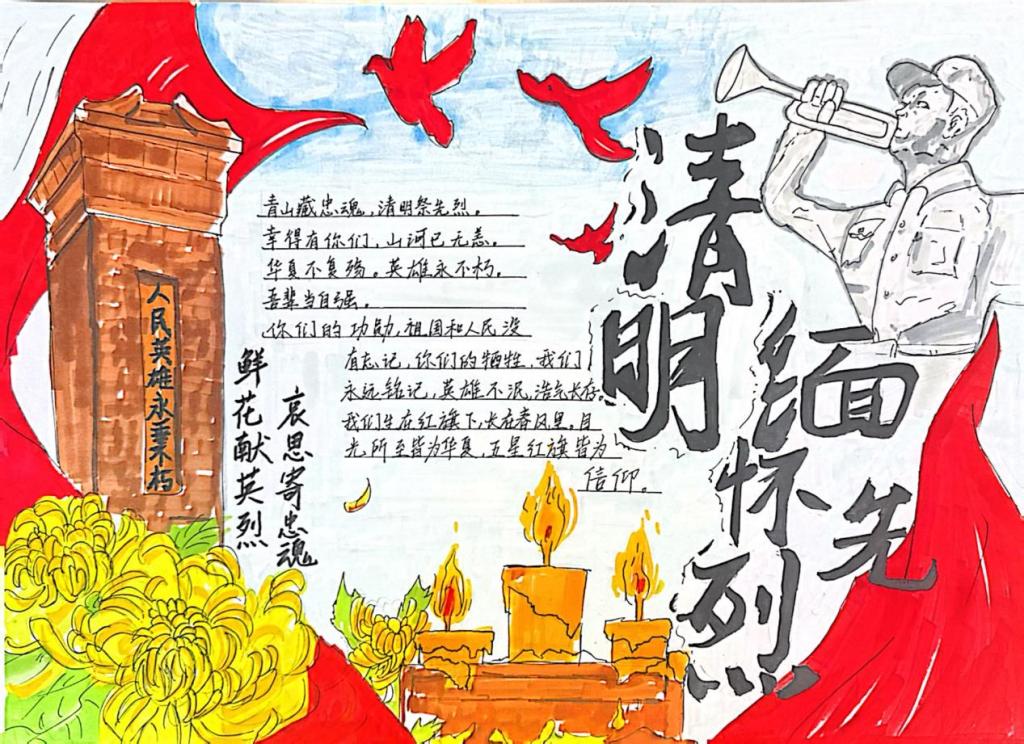 清明
缅怀先烈
青山藏忠魂，清明祭先烈。
幸得有你们，山河已无恙。
华夏不复殇。英雄永不朽。
吾辈当自强。
你们的功勋，祖国和人民没
有忘记，你们的牺牲，我们
永远铭记，英雄不泯，浩气长存。
我们生在红旗下，长在春风里。目
光所至皆为华夏，五星红旗皆为
信仰。
人民英雄永垂不朽
鲜花献英烈
哀思寄忠魂